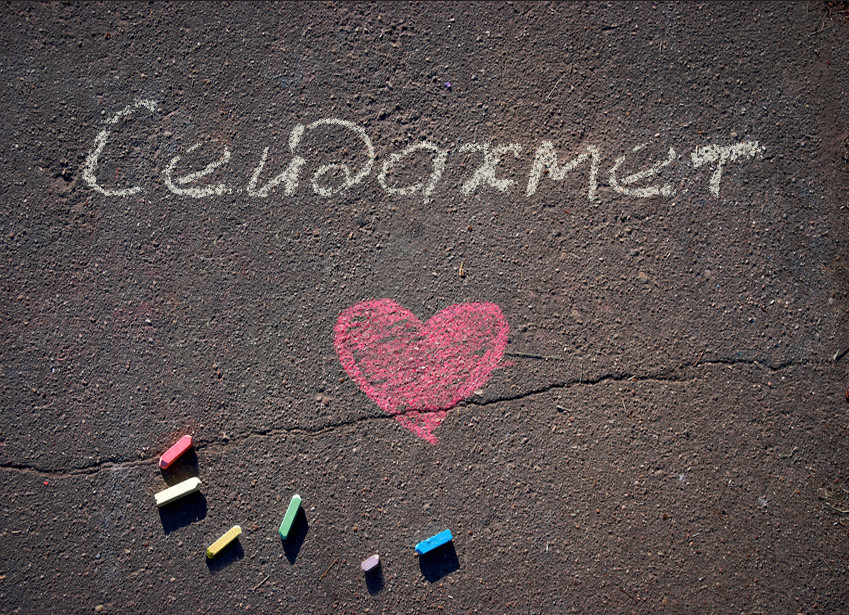 Сейдахмет